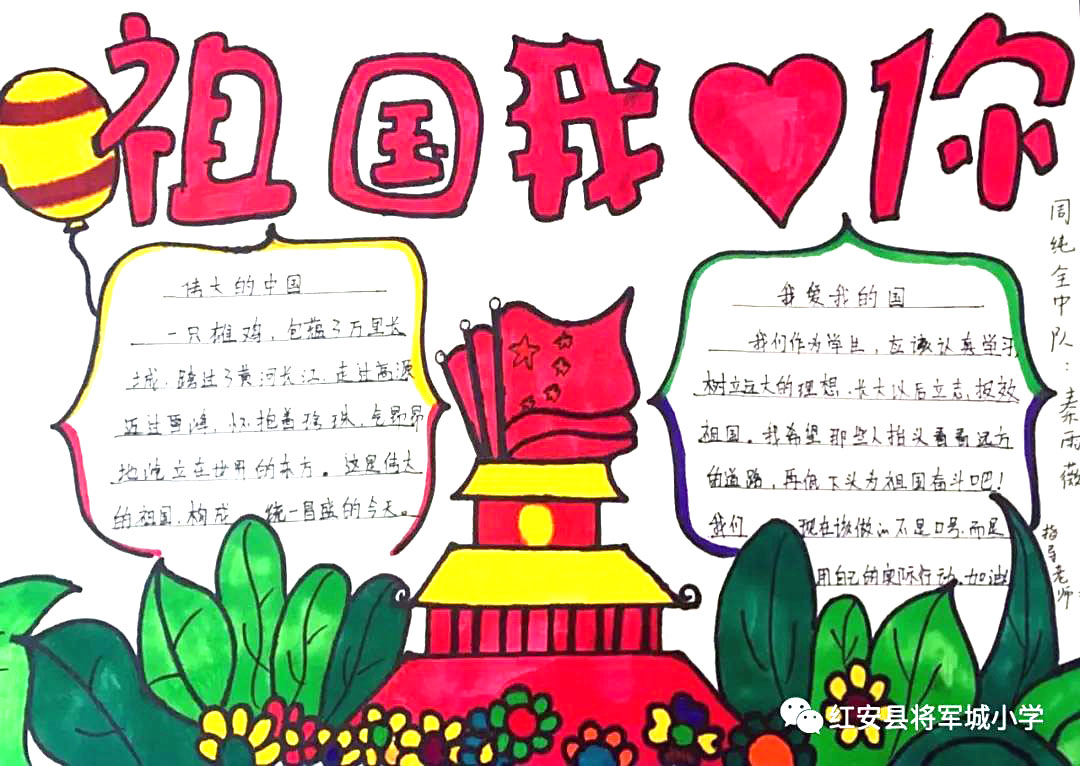 祖国我❤你
伟大的中国
一只雄鸡，包蕴了万里长
城，跨过了黄河长江，走过高源
迈过，怀抱着珍珠，气昂昂
地屹立在世界的东方。这是伟大
的祖国，构成 统一昌盛的今天。
我爱我的国
我们作为学生，应该认真学习
树立远大的理想，长大以后立志，报效
祖国。我希望那些人抬头看看远方
的道路，再低下头为祖国奋斗吧！
我们 现在该做的不是口号，而是
用自己的实际行动，加油
周纯全中队：秦雨薇
指导老师
红安县将军城小学